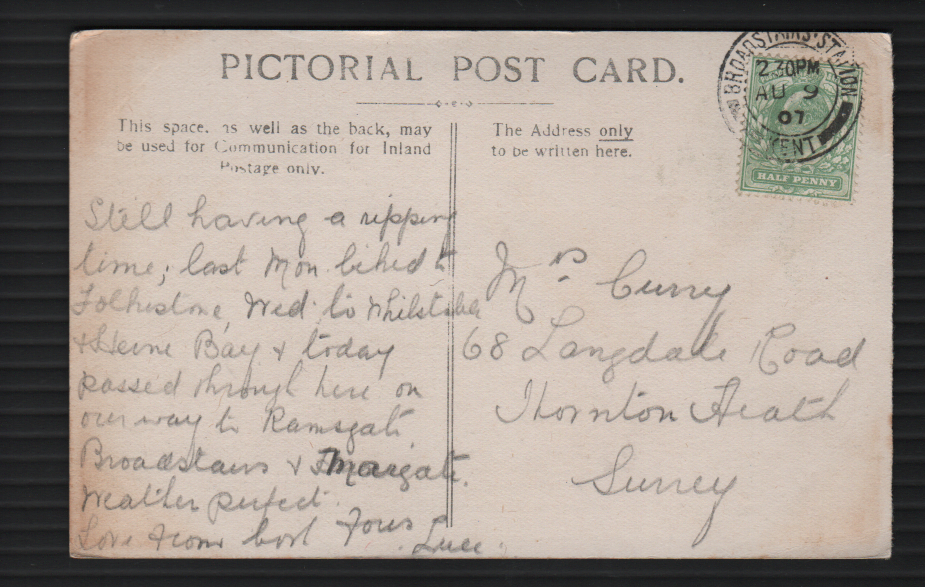 PICTORIAL POST CARD.
This space, as well as the back, may
be used for Communication for Inland
Postage only.
The Address only
to be written here.
BROADSTAIRS·STATION
2.30PM
AU 9
07
KENT
HALF PENNY
Still having a ripping
time, last Mon biked to
Folkestone, Wed. to Whitstable
& Herne Bay & today
passed through here on
our way to Ramsgate,
Broadstairs & Margate.
Weather perfect.
Love from both Yours
Mrs Curry
68 Langdale Road
Thornton Heath
Surrey